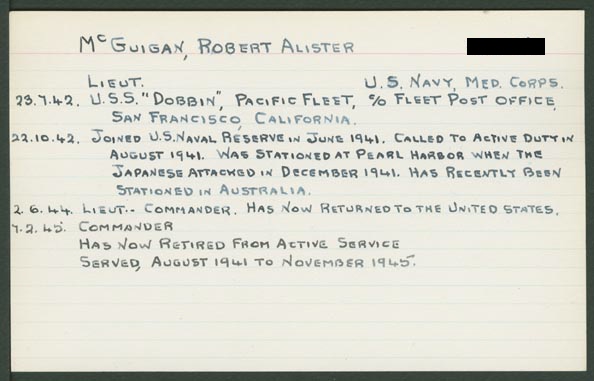 McGuigan, Robert Alister
Lieut. U.S. Navy, Med. Corps.
23.7.42. U.S.S. "Dobbin", Pacific Fleet, c/o Fleet Post Office,
San Francisco, California.
22.10.42. Joined U.S. Naval Reserve in June 1941. Called to Active Duty in
August 1941. Was stationed at Pearl Harbor when the
Japanese attacked in December 1941. Has recently been
stationed in Australia.
2.6.44. Lieut.-Commander. Has now returned to the United States.
7.2.45. Commander
Has now retired from active service
Served, August 1941 to November 1945.